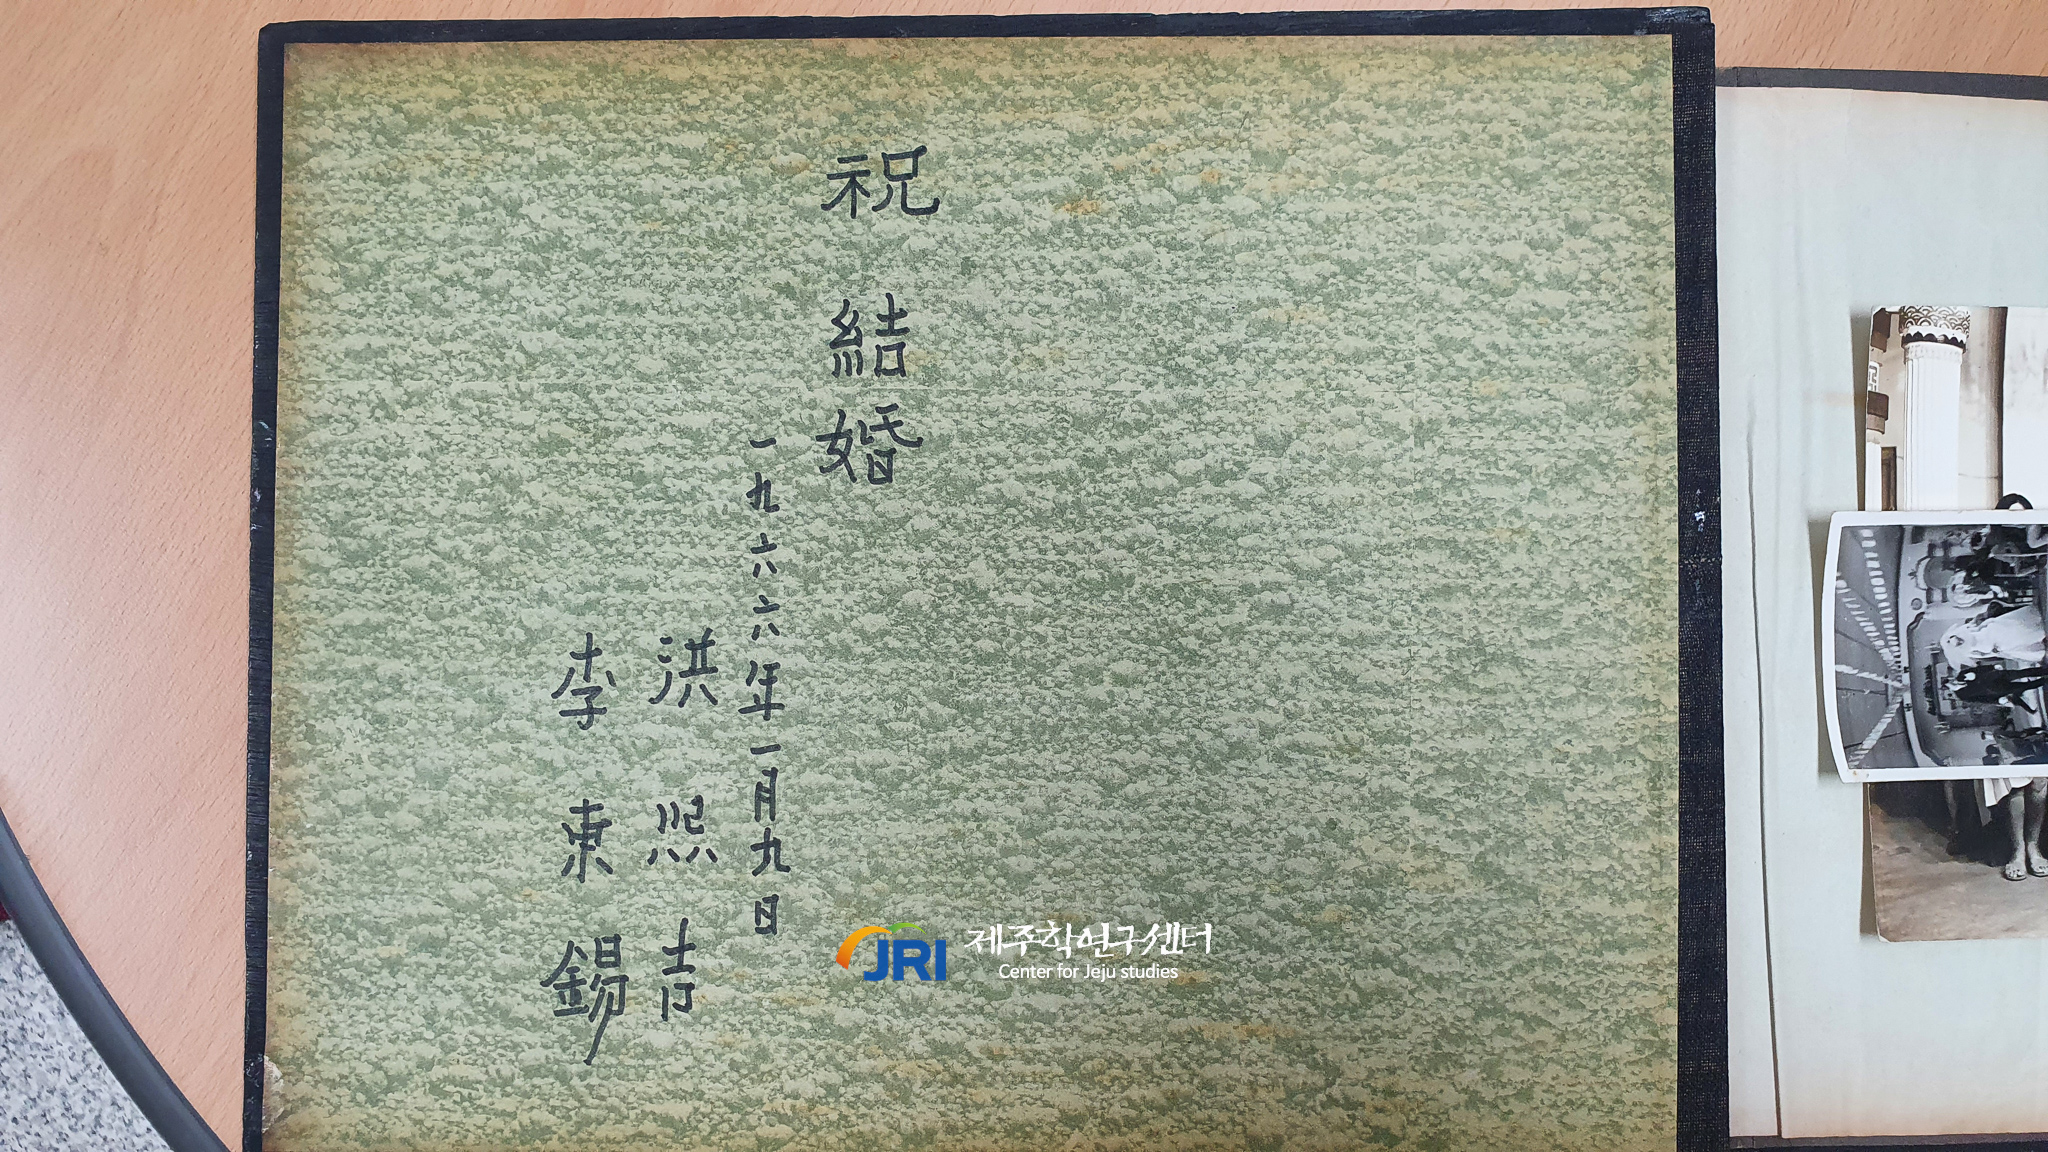 祝 結婚
一九六六年一月九日
洪 熙 吉
李 東 錫
JRI 제주학연구센터
Center for Jeju studies